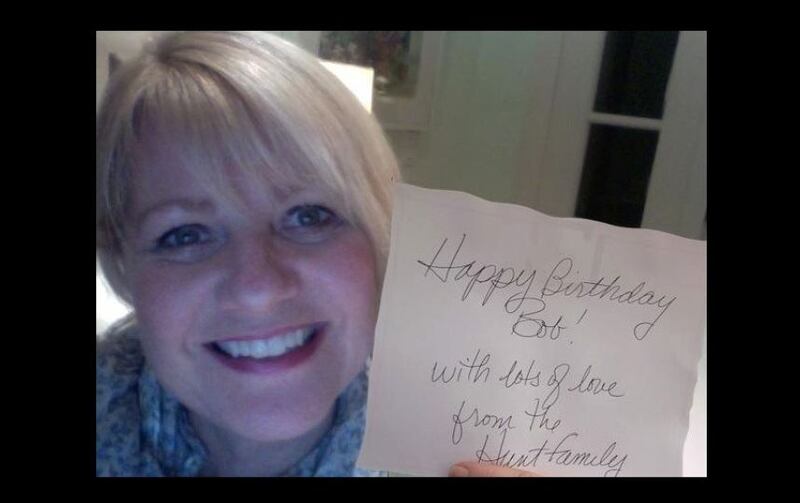 Happy Birthday
Bob!
with lots of love
from the
Hunt family